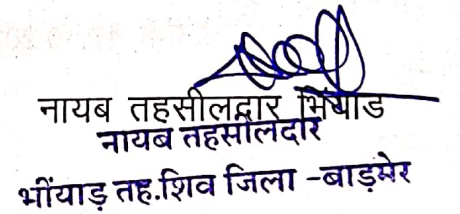 नायब तहसीलदार भिंयाड
नायब तहसीलदार
भींयाड़ तह.शिव जिला -बाड़मेर